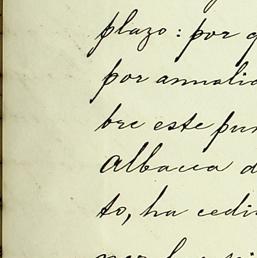 plazo: por q
por anualid
bre este pun
Albacea d
to, ha cedi